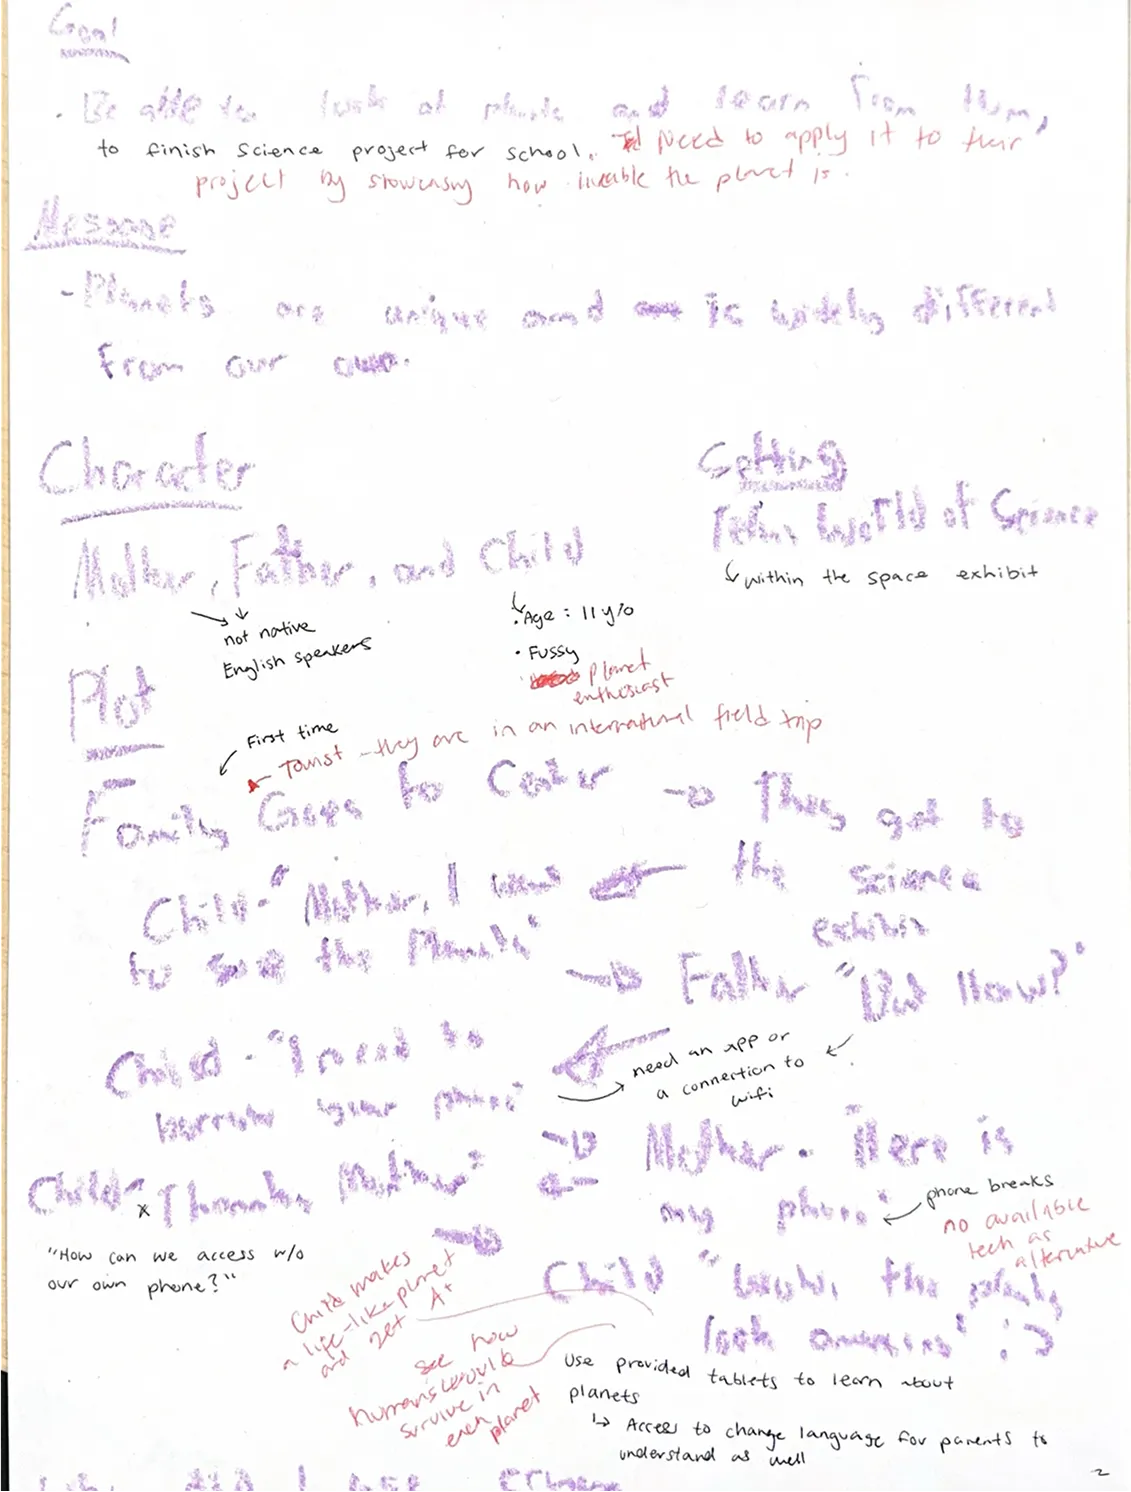 Goal
· Be able to look at planets and learn from them,
to finish science project for school. Need to apply it to their
project by showcasing how liveable the planet is.
Message
- Planets are unique and is widely different
from our own.
Character
Setting
Mother, Father, and Child
World of Science
within the space exhibit
not native
English speakers
· Age : 11 y/o
· Fussy
· planet
enthusiast
Plot
First time
Tourist - they are in an international field trip
Family Goes to Center → They got to
the science
exhibit
Child - "Mother, I want
to see the Planets"
→ Father "But How?"
Child - "I need to
borrow your phone"
need an app or
a connection to
wifi
→ Mother - "Here is
my phone"
phone breaks
no available
tech as
alternative
Child - "Thanks Mother"
"How can we access w/o
our own phone?"
Child "Wow, the planets
look amazing" :)
Child makes
a life-like planet
and get A+
see how
humans would
survive in
each planet
Use provided tablets to learn about
planets
↳ Access to change language for parents to
understand as well
2